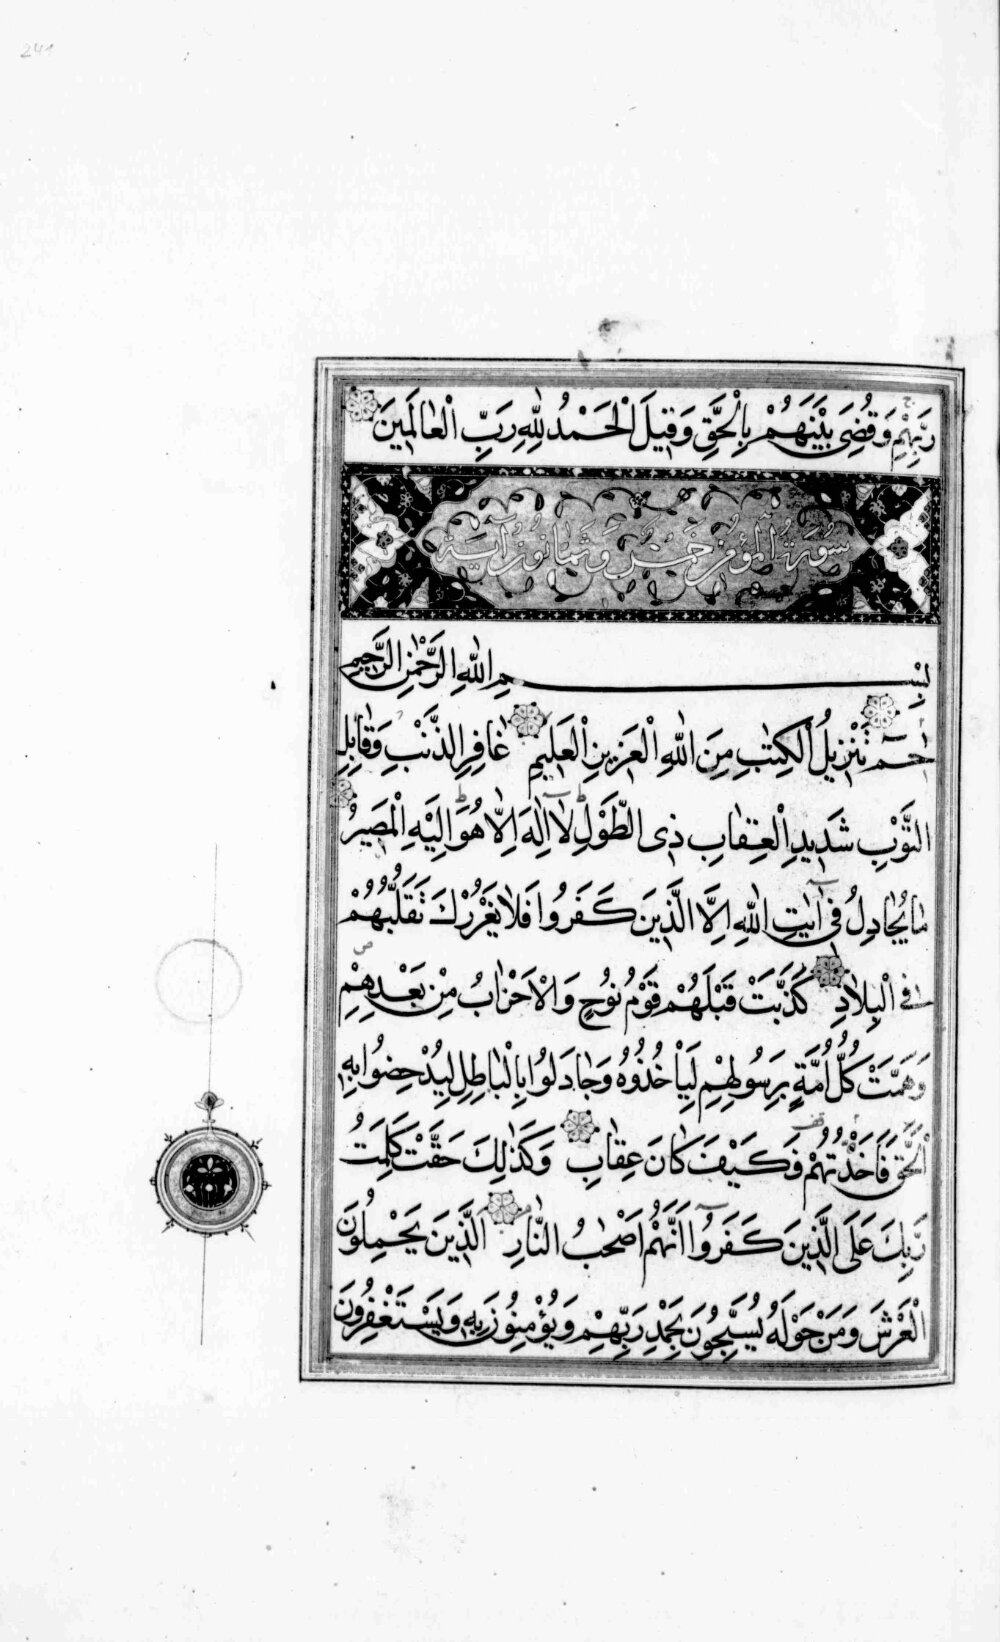 241
رَبِّهِمْ وَقُضِىَ بَيْنَهُمْ بِالْحَقِّ وَقِيلَ الْحَمْدُ لِلّٰهِ رَبِّ الْعٰالَمِينَ
سُورَةُ الْمُؤْمِنِ خَمْسٌ وَثَمَانُونَ آيَة
بِسْمِ اللّٰهِ الرَّحْمٰنِ الرَّحِيمِ
حٰمٓ تَنْزِيلُ الْكِتٰبِ مِنَ اللّٰهِ الْعَزِيزِ الْعَلِيمِ غٰافِرِ الذَّنْبِ وَقٰابِلِ
التَّوْبِ شَدِيدِ الْعِقٰابِ ذِى الطَّوْلِ لٰٓا اِلٰهَ اِلّٰا هُوَ اِلَيْهِ الْمَصِيرُ
مٰا يُجٰادِلُ فِىٓ اٰيٰتِ اللّٰهِ اِلَّا الَّذِينَ كَفَرُوا فَلٰا يَغْرُرْكَ تَقَلُّبُهُمْ
فِى الْبِلٰادِ كَذَّبَتْ قَبْلَهُمْ قَوْمُ نُوحٍ وَالْاَحْزٰابُ مِنْ بَعْدِهِمْ
وَهَمَّتْ كُلُّ اُمَّةٍ بِرَسُولِهِمْ لِيَاْخُذُوهُ وَجٰادَلُوا بِالْبٰاطِلِ لِيُدْحِضُوا بِهِ
الْحَقَّ فَاَخَذْتُهُمْ فَكَيْفَ كٰانَ عِقٰابِ وَكَذٰلِكَ حَقَّتْ كَلِمَتُ
رَبِّكَ عَلَى الَّذِينَ كَفَرُوٓا اَنَّهُمْ اَصْحٰبُ النّٰارِ اَلَّذِينَ يَحْمِلُونَ
الْعَرْشَ وَمَنْ حَوْلَهُ يُسَبِّحُونَ بِحَمْدِ رَبِّهِمْ وَيُؤْمِنُونَ بِهِ وَيَسْتَغْفِرُونَ